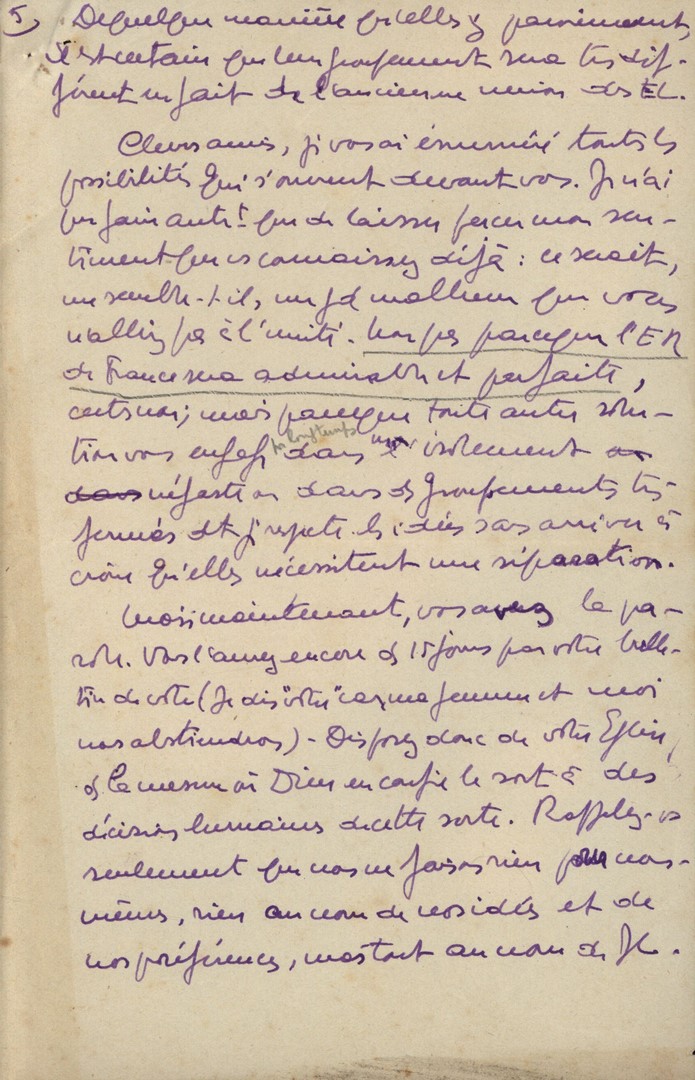 5) De quelque manière qu'elles y parviennent,
il est certain que leur groupement sera très dif-
férent en fait de l'ancienne union des EL.
Chers amis, je vous ai énuméré toutes les
possibilités qui s'ouvrent devant vous. Je n'ai
pu faire autt que de laisser percer mon sen-
timent que vs connaissez déjà : ce serait,
me semble-t-il, un gd malheur que vous
n'alliez pas à l'unité. Non pas parce que l'ER
de France sera admirable et parfaite,
certes non; mais parce que toute autre solu-
tion vous engage pr longtemps dans un isolement ou
dans néfaste ou dans des groupements très
fermés dt je respecte les idées sans arriver à
croire qu'elles nécessitent une séparation.
Mais maintenant, vous avez la pa-
role. Vous l'aurez encore ds 15 jours par votre bulle-
tin de vote (Je dis "votre" car ma femme et moi
nous abstiendrons) - Disposez donc de votre Eglise,
ds la mesure où Dieu en confie le sort à des
décisions humaines de cette sorte. Rappelez-vs
seulement que nous ne faisons rien pour nous-
mêmes, rien au nom de nos idées et de
nos préférences, mais tout au nom de JC.